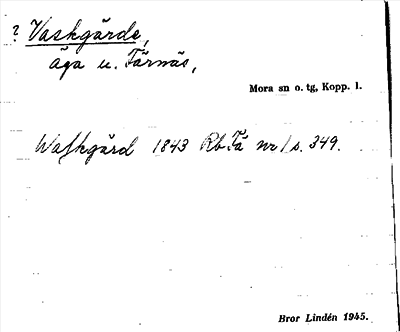 ? Vaskgärde,
äga u. Färnäs,
Mora sn o. tg, Kopp. l.
Waskgärd 1843 Rb Fä nr 1 s. 349.
Bror Lindén 1945.